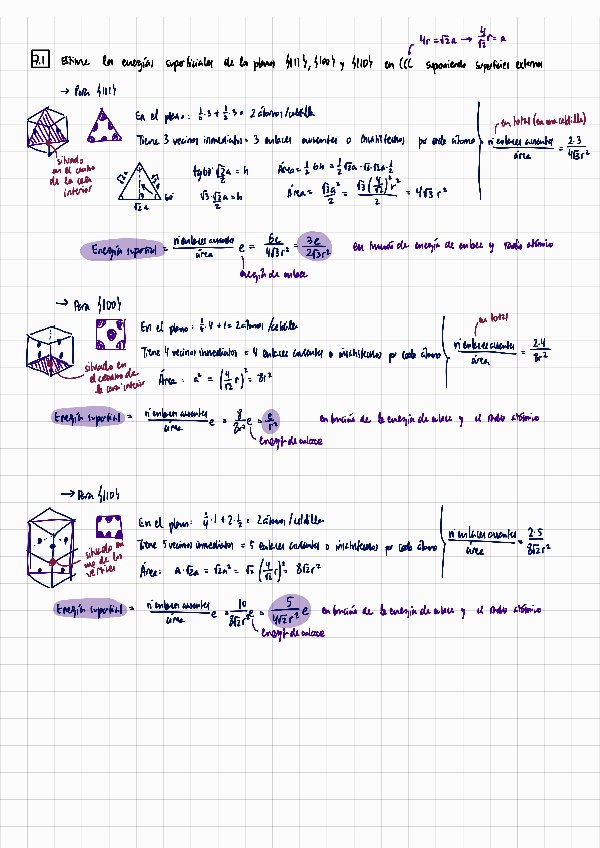 4r = √2 a → 4/√2 r = a
2.1 Estime las energías superficiales de los planos {111}, {100} y {110} en CCC suponiendo superficies externas
→ Para {111}
En el plano: 1/6·3 + 1/2·3 = 2 átomos/celdilla
Tiene 3 vecinos inmediatos = 3 enlaces ausentes o insatisfechos por cada átomo
en total (en una celdilla)
nº enlaces ausentes / área = 2·3 / 4√3 r²
situado en el centro de la cara interior
√2 a
√2 a
60º
tg60 · √2/2 a = h
√3 · √2/2 a = h
Área = 1/2 b h = 1/2 √2 a · √3 · √2 a · 1/2
Área = √3 a² / 2 = √3 (4/√2)² r² / 2 = 4√3 r²
Energía superficial = nº enlaces ausentes / área e = 6e / 4√3 r² = 3e / 2√3 r² en función de energía de enlace y radio atómico
energía de enlace
→ Para {100}
En el plano: 1/4·4 + 1 = 2 átomos/celdilla
Tiene 4 vecinos inmediatos = 4 enlaces ausentes o insatisfechos por cada átomo
en total
nº enlaces ausentes / área = 2·4 / 8r²
situado en el centro de la cara inferior
Área: a² = (4/√2 r)² = 8r²
Energía superficial = nº enlaces ausentes / área e = 8/8r² e = e/r² en función de la energía de enlace y el radio atómico
energía de enlace
→ Para {110}
En el plano: 1/4·4 + 2·1/2 = 2 átomos/celdilla
Tiene 5 vecinos inmediatos = 5 enlaces ausentes o insatisfechos por cada átomo
nº enlaces ausentes / área = 2·5 / 8√2 r²
situado en uno de los vértices
Área: a·√2 a = √2 a² = √2 (4/√2 r)² = 8√2 r²
Energía superficial = nº enlaces ausentes / área e = 10/8√2 r² e = 5/4√2 r² e en función de la energía de enlace y el radio atómico
energía de enlace